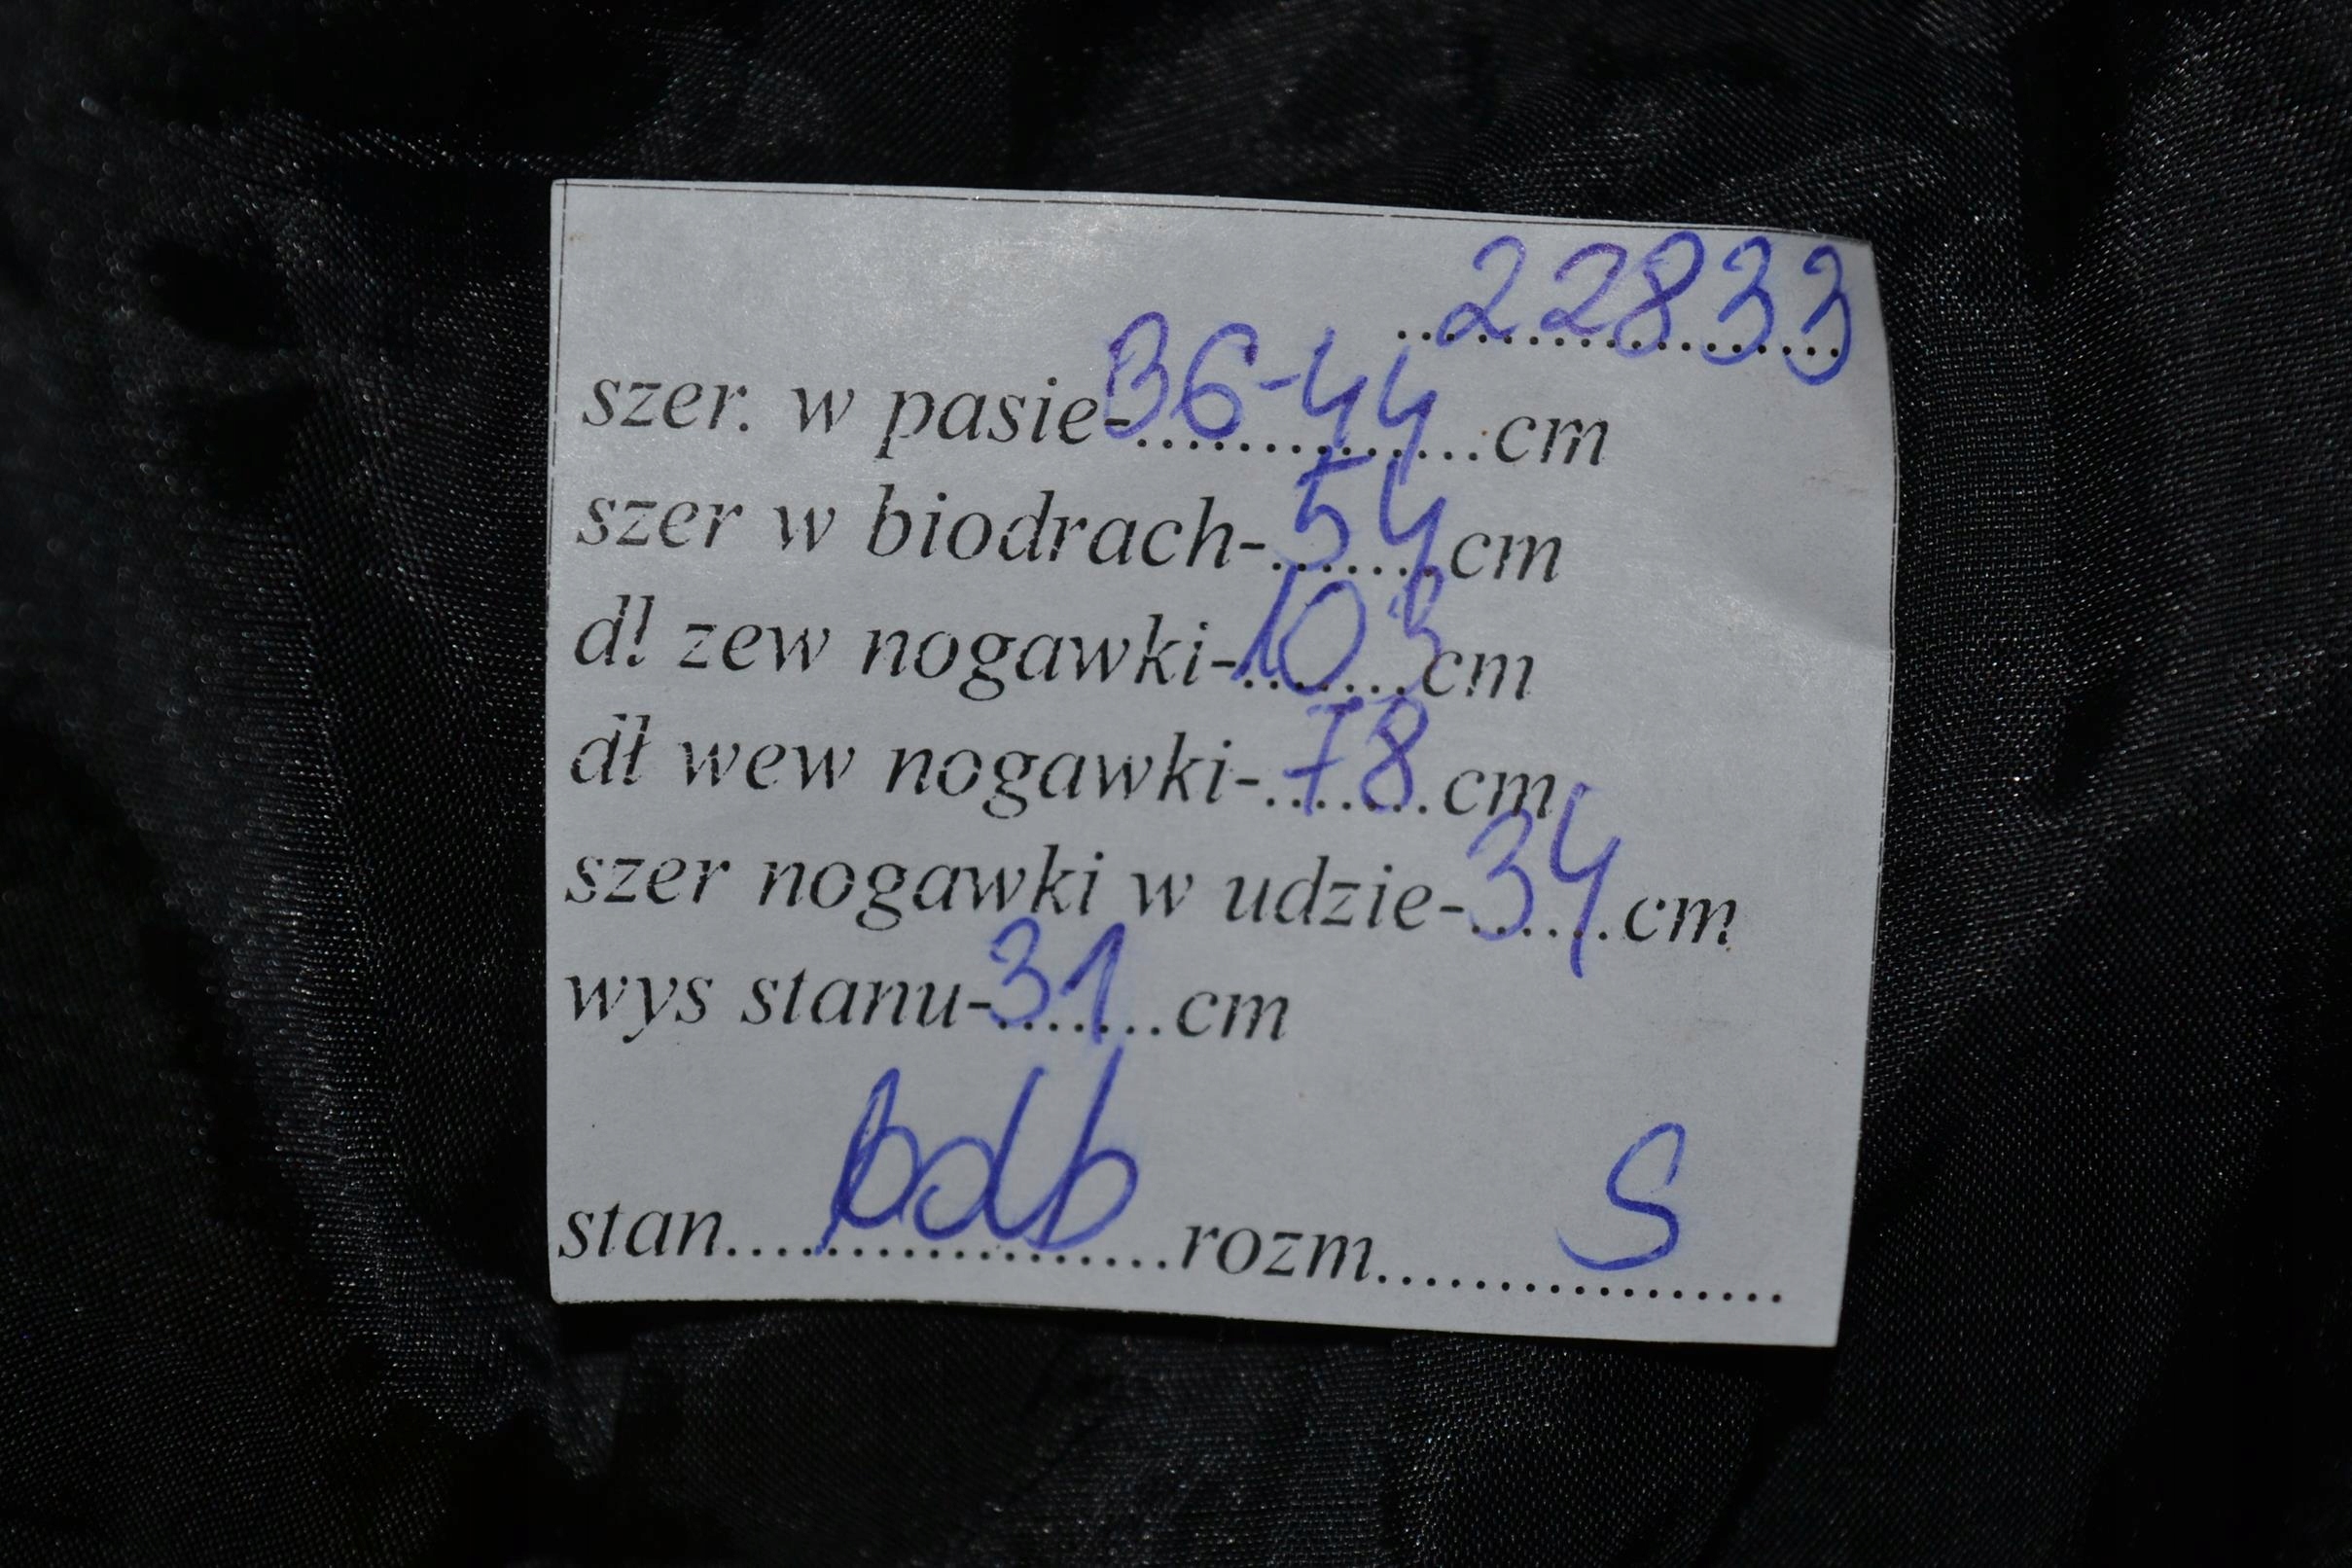 22833
szer. w pasie-36-44cm
szer w biodrach-54cm
dł zew nogawki-103cm
dł wew nogawki-78cm
szer nogawki w udzie-34cm
wys stanu-31cm
stan bdb rozm S